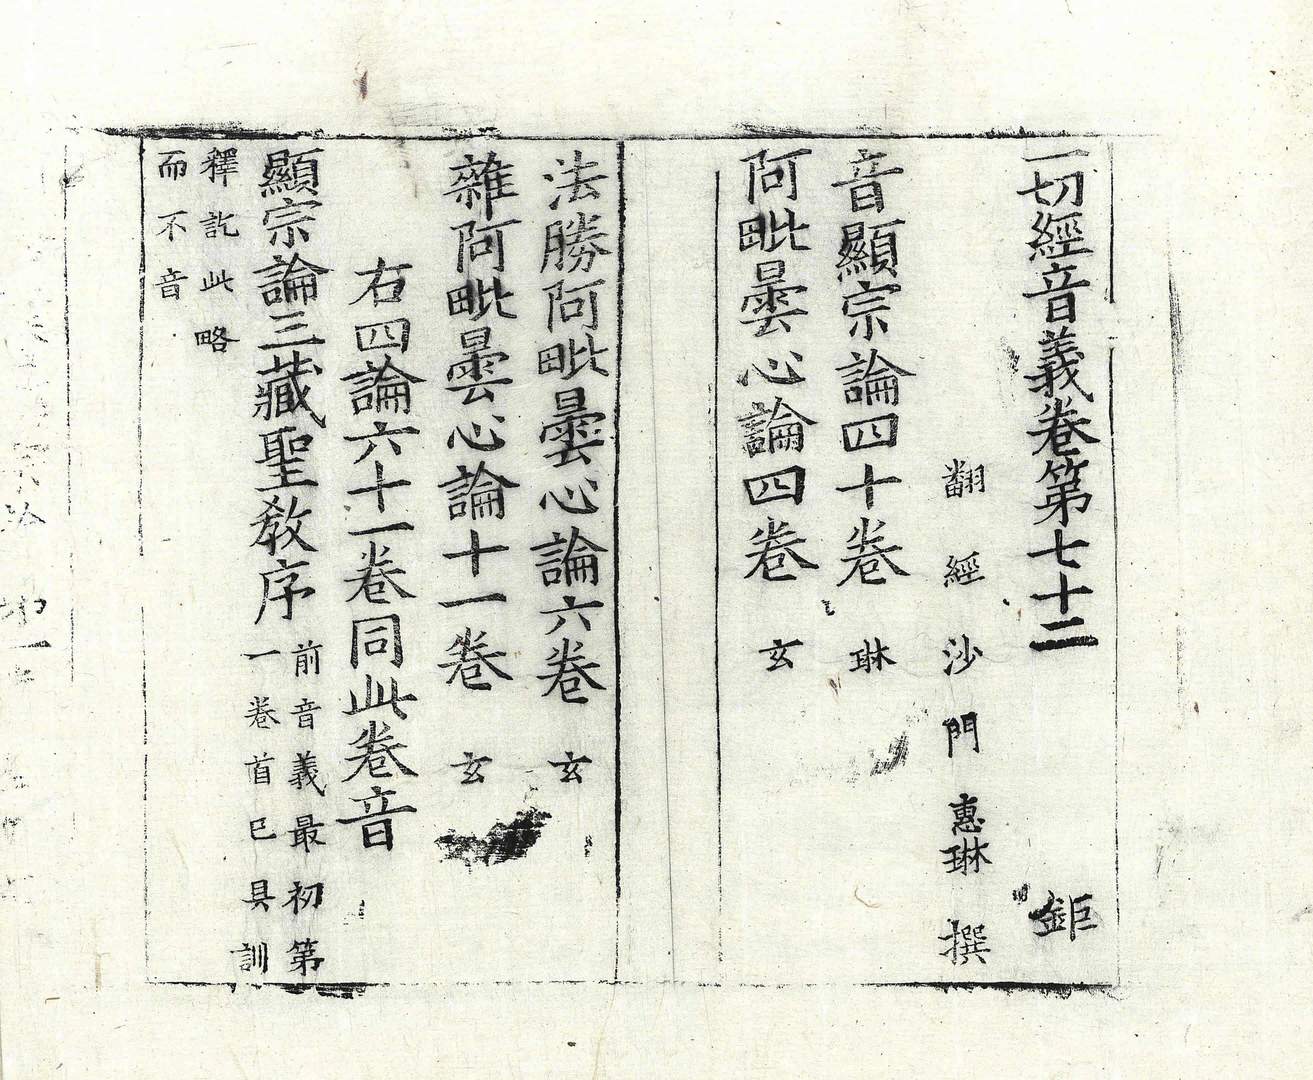 一切經音義卷第七十二 鉅
翻經沙門惠琳撰
音顯宗論四十卷 琳
阿毗曇心論四卷 玄
法勝阿毗曇心論六卷 玄
雜阿毗曇心論十一卷 玄
右四論六十一卷同此卷音
顯宗論三藏聖教序
前音義最初第
一卷首已具訓
釋訖此略
而不音